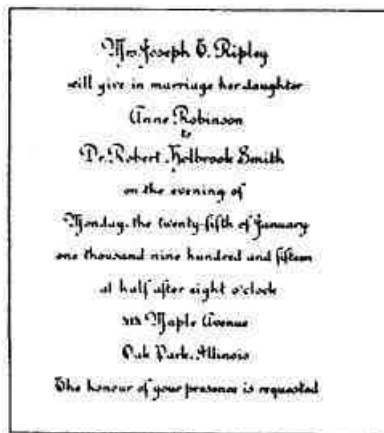 Mrs. Joseph E. Ripley
will give in marriage her daughter
Anne Robinson
to
Dr. Robert Holbrook Smith
on the evening of
Monday, the twenty-fifth of January
one thousand nine hundred and fifteen
at half after eight o'clock
Maple Avenue
Oak Park, Illinois
The honour of your presence is requested